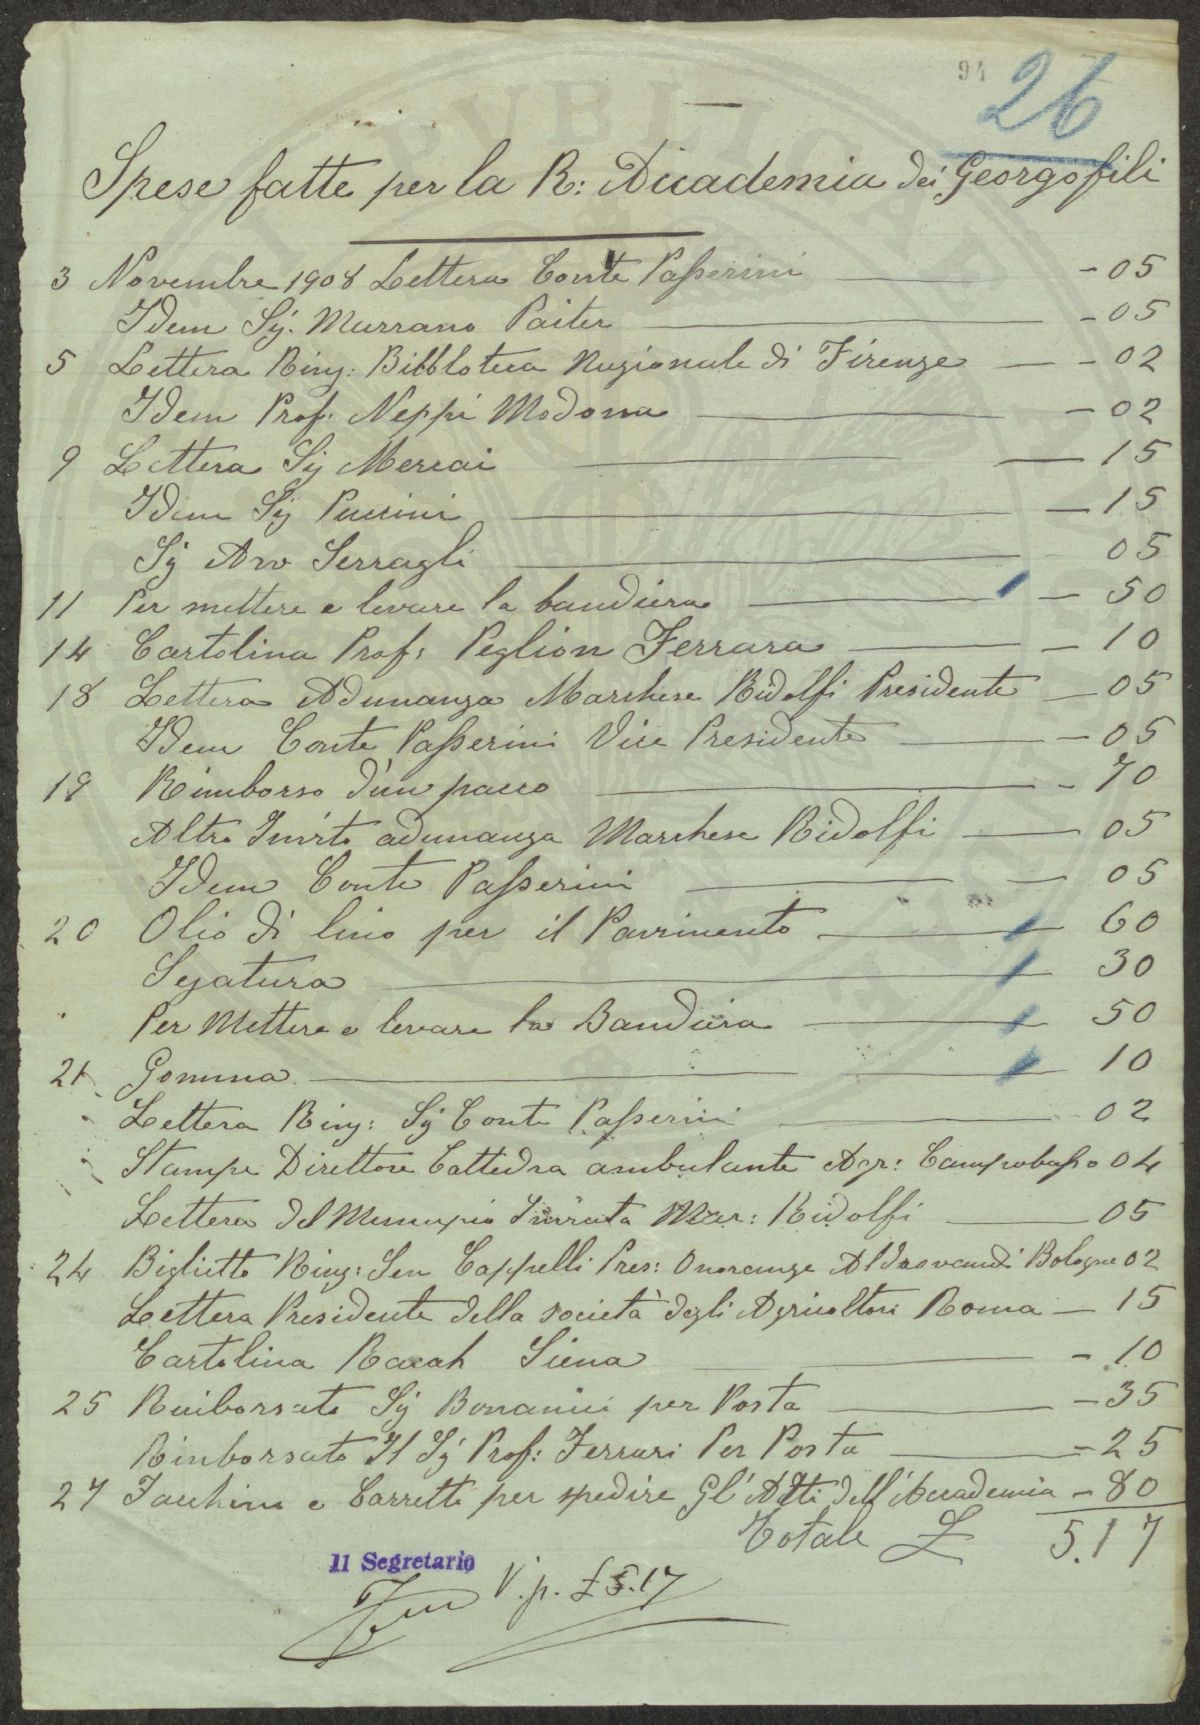 94
26
Spese fatte per la R: Accademia dei Georgofili
3 Novembre 1908 Lettera Conte Passerini - 05
Idem Sg. Murrano Paiter - 05
5 Lettera Ring: Biblioteca Nazionale di Firenze - 02
Idem Prof. Neppi Modona - 02
9 Lettera Sg Mercai - 15
Idem Sg Puccini - 15
Sg Avv Serragli 05
11 Per mettere e levare la bandiera - 50
14 Cartolina Prof: Peglion Ferrara - 10
18 Lettera Adunanza Marchese Ridolfi Presidente - 05
Idem Conte Passerini Vice Presidente - 05
19 Rimborso d'un pacco - 70
Altro Invito adunanza Marchese Ridolfi 05
Idem Conte Passerini - 05
20 Olio di lino per il Pavimento 60
Segatura 30
Per Mettere e levare la Bandiera 50
21 Gomma 10
Lettera Ring: Sg Conte Passerini 02
Stampe Direttore Cattedra ambulante Agr: Campobasso 04
Lettera del Municipio Inviata Mar: Ridolfi 05
24 Biglietto Ring: Sen Cappelli Pres: Onoranze Aldrovandi Bologna 02
Lettera Presidente della società degli Agricoltori Roma - 15
Cartolina Racah Siena - 10
25 Rimborsato Sg Bonamici per Posta - 35
Rimborsato Il Sg Prof: Ferrari Per Posta - 25
27 Facchino e Carretto per spedire Gl'Atti dell'Accademia - 80
Totale £ 5.17
Il Segretario
V. p. £ 5.17